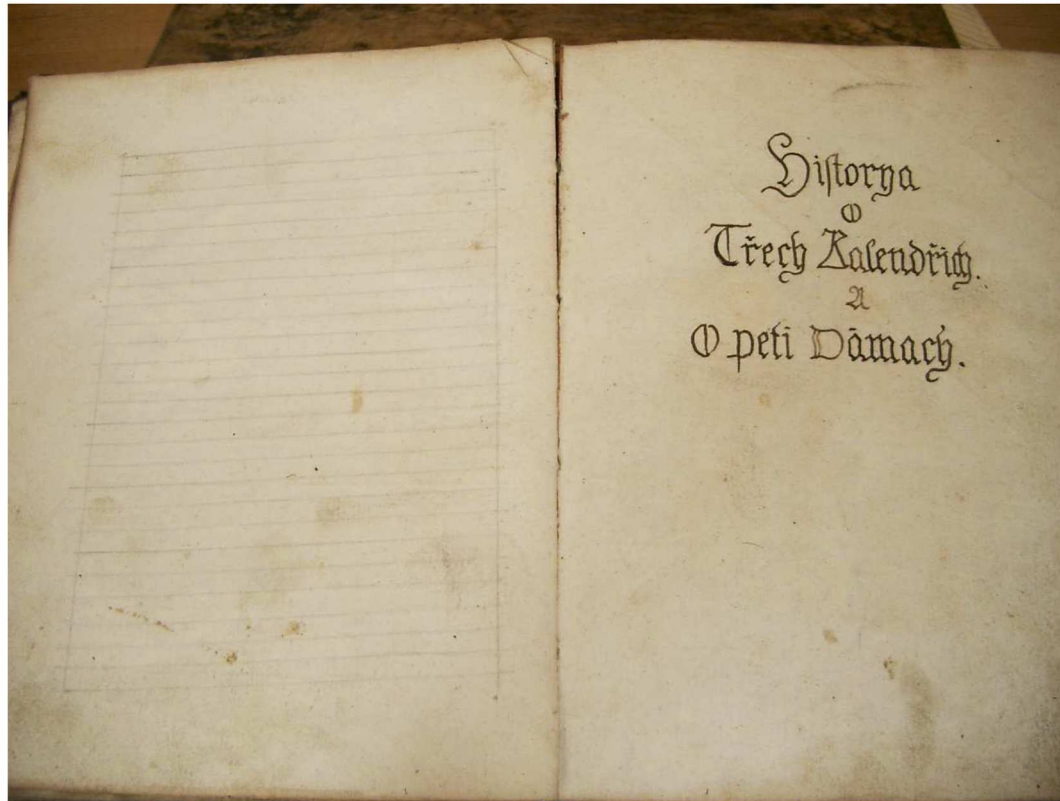 Hiſtorya
O
Třech Kalendřich.
A
O peti Dāmach.